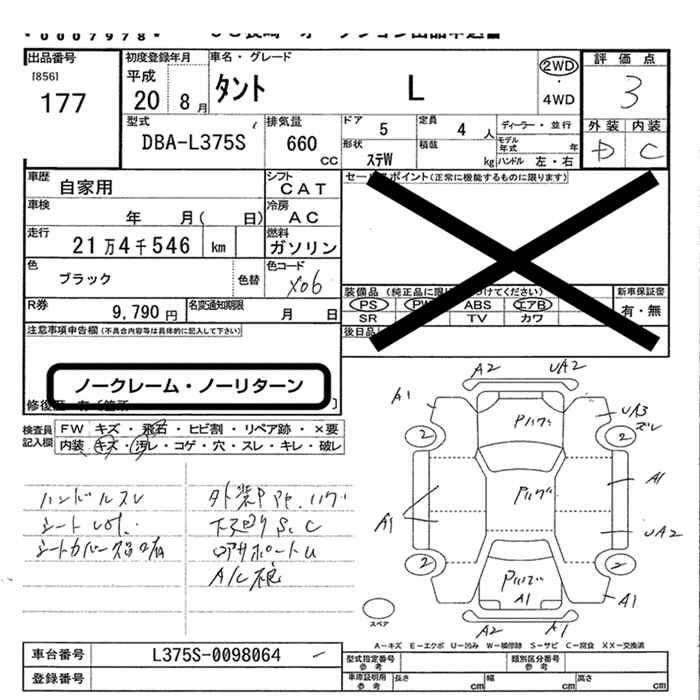 *0007978*
出品番号
[856]
177
初度登録年月
平成
20 8月
車名・グレード
タント L
2WD
・
4WD
評価点
3
外装 内装
D C
型式
DBA-L375S
排気量
660
CC
ドア 5
定員 4 人
ディーラー・並行
形状 ステW
積載 kg
モデル年式 年
ハンドル 左・右
車歴
自家用
シフト
CAT
セールスポイント(正常に機能するものに限ります)
車検
年 月( 日)
冷房
AC
走行
21万4千546 km
燃料
ガソリン
色
ブラック
色替
色コード
X06
装備品(純正品に限り つけてください)
PS PW ABS エアB
SR TV カワ
新車保証書
有・無
R券
9,790円
名変通知期限
月 日
後日品
注意事項申告欄(不具合内容等は具体的に記入して下さい)
ノークレーム・ノーリターン
修復歴 有〔箇所 〕
検査員
記入欄
FW キズ・飛石・ヒビ割・リペア跡・×要
内装 キズ・汚レ・コゲ・穴・スレ・キレ・破レ
ハンドルスレ
シート
シートカバー
外装
下廻りS,C
A/C
A2 UA2
A1 UA3
ズレ
2 2
Pハゲ
A1
A1
Pハゲ
UA2
2 2
Pハゲ
A1
A1
A2 A1
スペア
A−キズ E−エクボ U−凹み W−補修跡 S−サビ C−腐食 XX−交換済
車台番号
L375S-0098064
型式指定番号
参考
類別区分番号
参考
登録番号
車庫証明用
参考
長さ cm
幅 cm
高さ cm